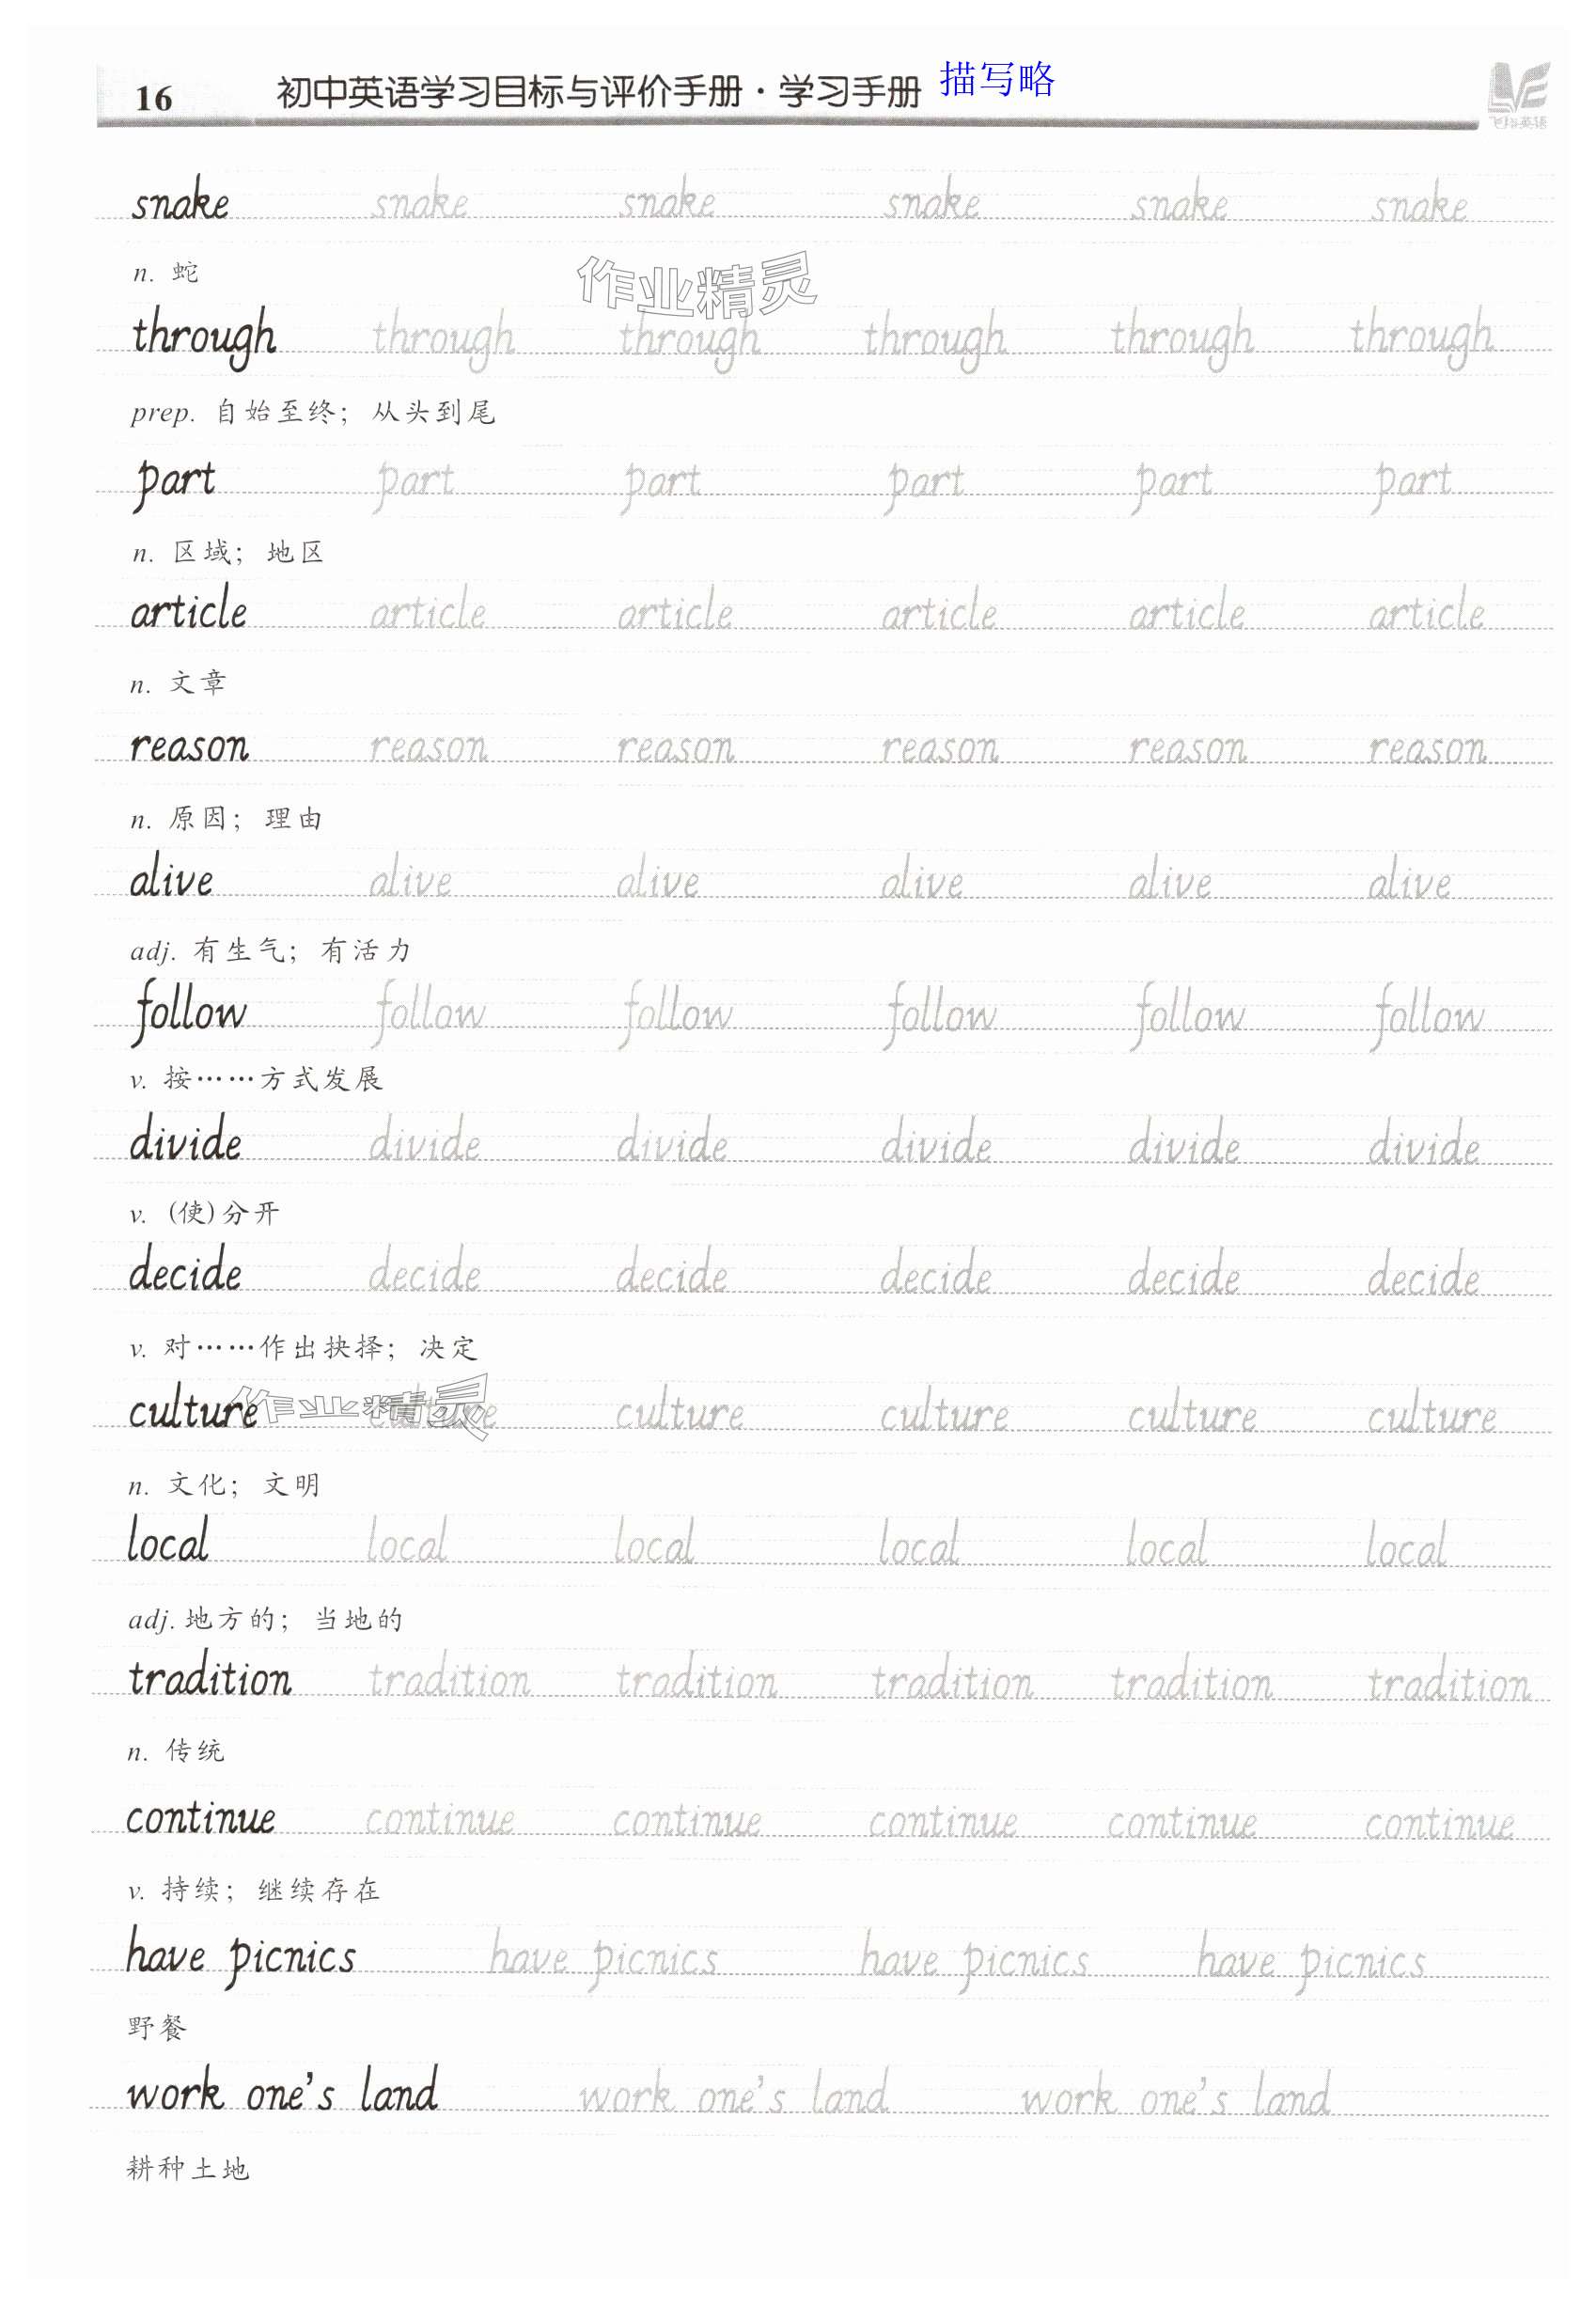 16 初中英语学习目标与评价手册·学习手册 描写略
snake snake snake snake snake snake
n. 蛇
作业精灵
through through through through through through
prep. 自始至终；从头到尾
part part part part part part
n. 区域；地区
article article article article article article
n. 文章
reason reason reason reason reason reason
n. 原因；理由
alive alive alive alive alive alive
adj. 有生气；有活力
follow follow follow follow follow follow
v. 按……方式发展
divide divide divide divide divide divide
v. (使)分开
decide decide decide decide decide decide
v. 对……作出抉择；决定
culture culture culture culture culture culture
作业精灵
n. 文化；文明
local local local local local local
adj. 地方的；当地的
tradition tradition tradition tradition tradition tradition
n. 传统
continue continue continue continue continue continue
v. 持续；继续存在
have picnics have picnics have picnics have picnics
野餐
work one's land work one's land work one's land
耕种土地